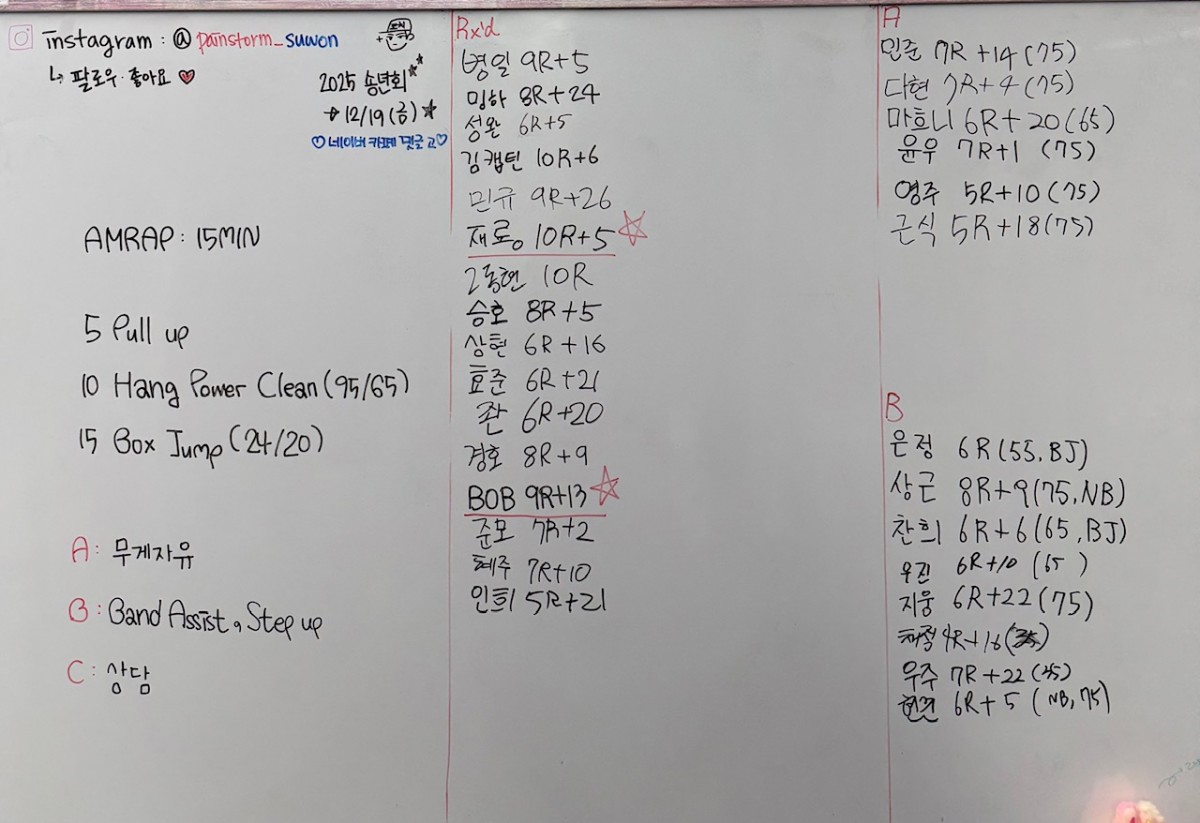 instagram : @ painstorm_suwon
↳ 팔로우·좋아요 ♥
2025 송년회
→ 12/19 (금) ★
♡ 네이버 카페 댓글 고 ♡
AMRAP : 15MIN
5 Pull up
10 Hang Power Clean (95/65)
15 Box Jump (24/20)
A : 무게자유
B : Band Assist, Step up
C : 상담
Rx'd
병일 9R+5
밍하 8R+24
성완 6R+5
김캡틴 10R+6
민규 9R+26
재룡 10R+5 ☆
2동현 10R
승호 8R+5
상현 6R+16
효준 6R+21
좐 6R+20
경호 8R+9
BOB 9R+13 ☆
준모 7R+2
혜주 7R+10
인희 5R+21
A
민준 7R+14 (75)
다현 7R+4 (75)
마흐니 6R+20 (65)
윤우 7R+1 (75)
영주 5R+10 (75)
근식 5R+18 (75)
B
은정 6R (55, BJ)
상근 8R+9 (75, NB)
찬희 6R+6 (65, BJ)
우진 6R+10 (65 )
지웅 6R+22 (75)
4R+16
우주 7R+22
6R+5 (NB, 75)